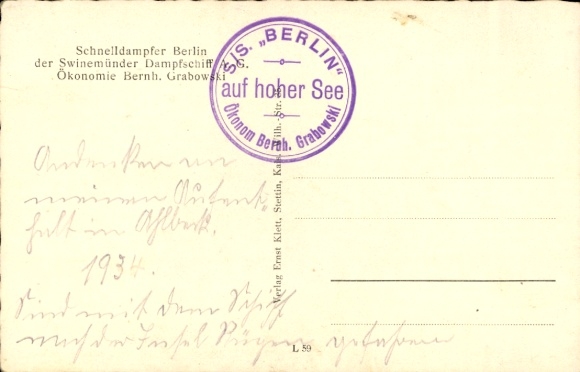 Schnelldampfer Berlin
der Swinemünder Dampfschiff A.G.
Ökonomie Bernh. Grabowski
S/S. „BERLIN"
auf hoher See
Ökonom Bernh. Grabowski
Andenken an
meinen Aufent-
halt in Ahlbeck.
1934.
Sind mit dem Schiff
nach der Insel Rügen gefahren
Verlag Ernst Klett, Stettin, Kais. Wilh.-Str.
L 59